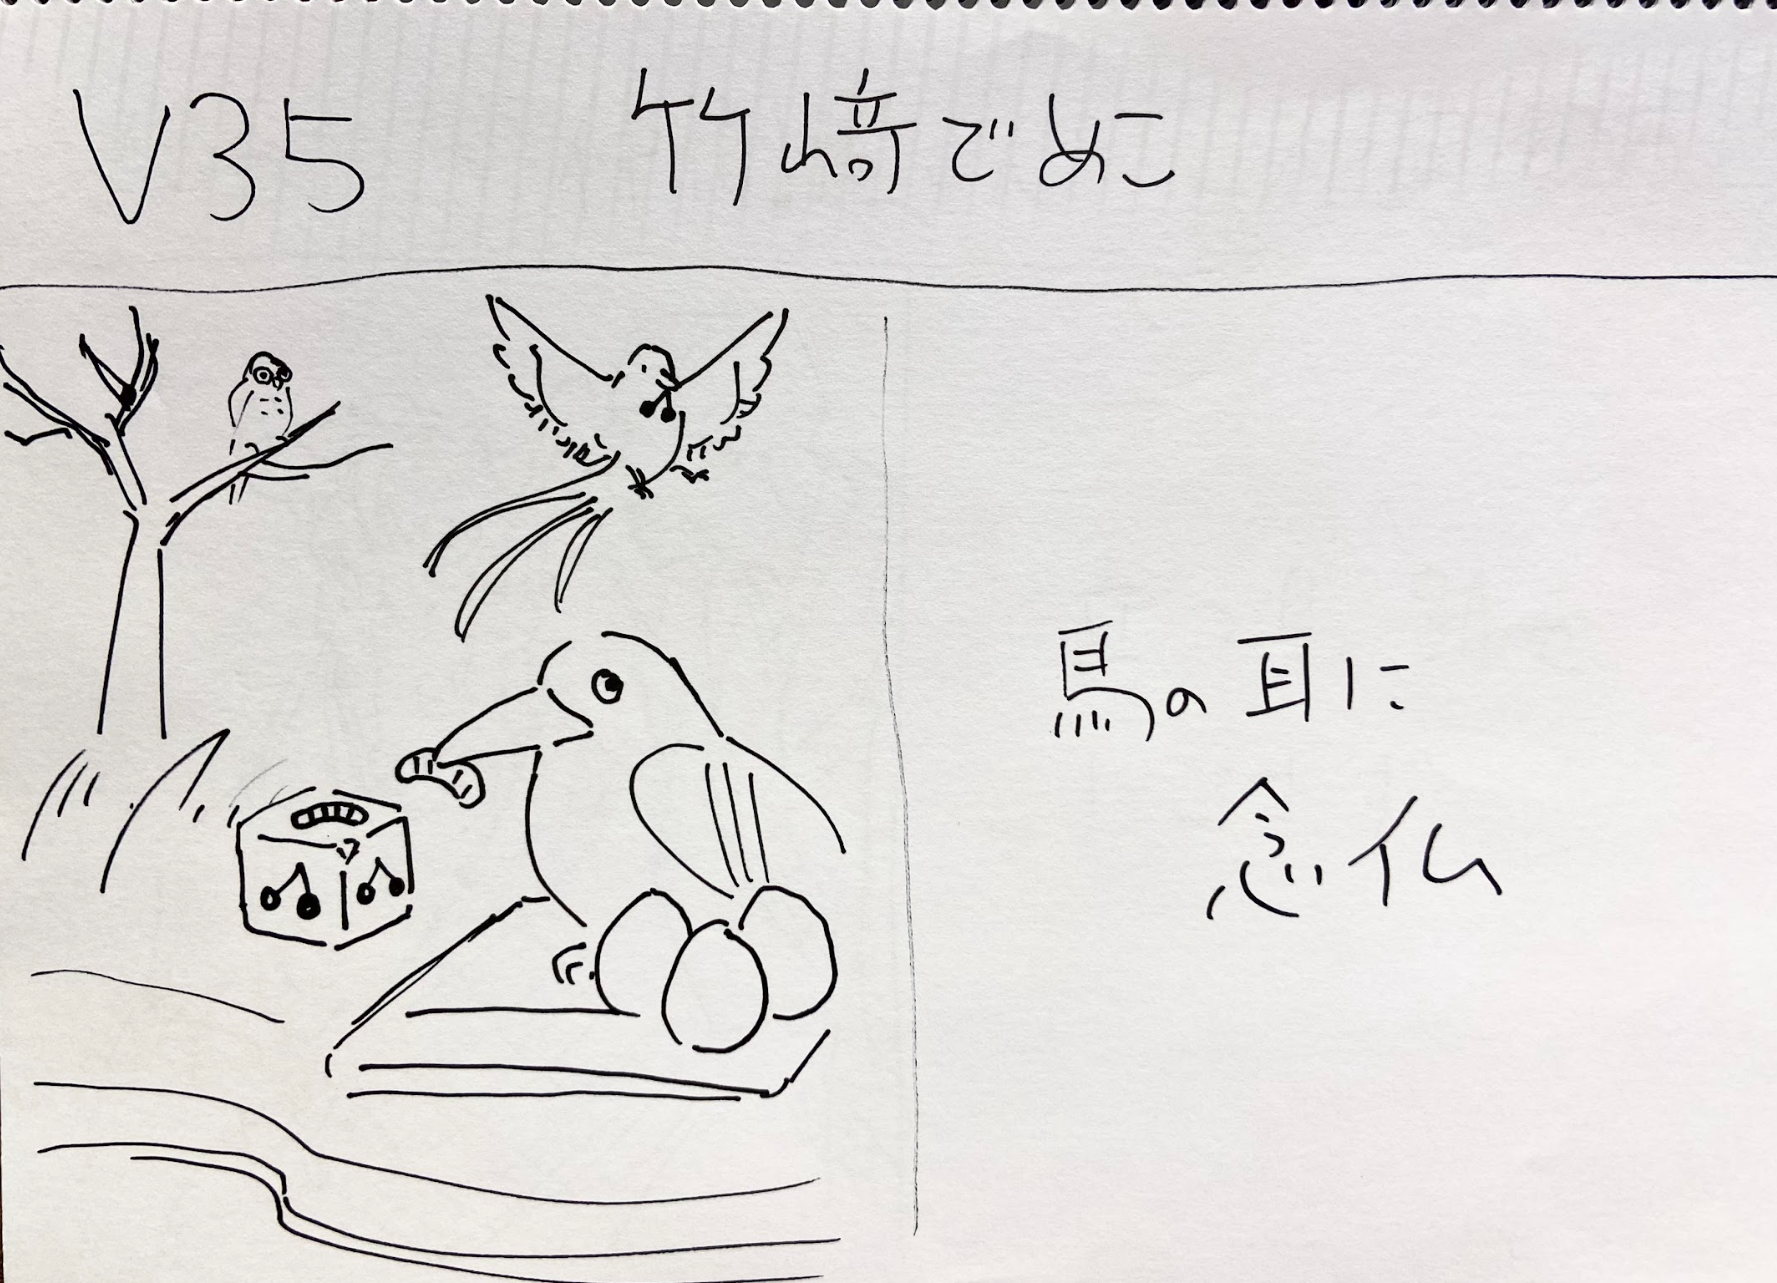 V35 竹﨑でめこ
馬の耳に
念仏